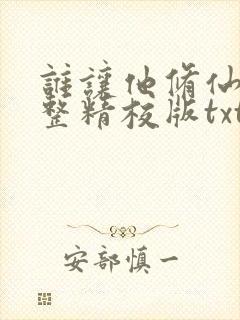 誰讓他脩仙
整精校版txt
安部慎一